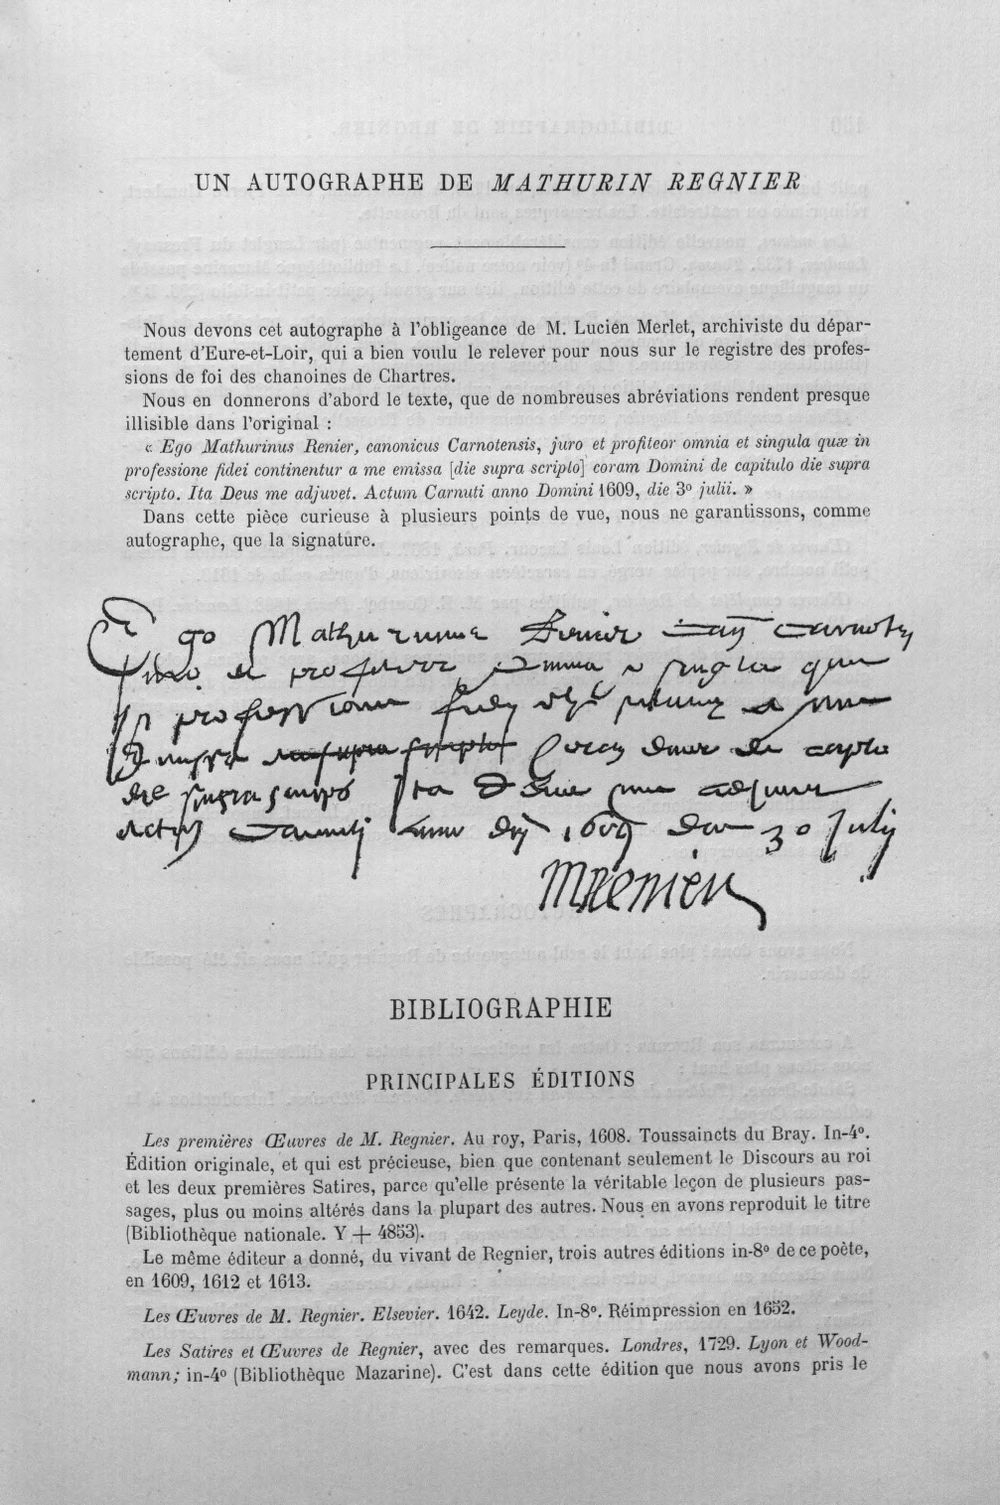 UN AUTOGRAPHE DE MATHURIN REGNIER
Nous devons cet autographe à l'obligeance de M. Lucien Merlet, archiviste du dépar-
tement d'Eure-et-Loir, qui a bien voulu le relever pour nous sur le registre des profes-
sions de foi des chanoines de Chartres.
Nous en donnerons d'abord le texte, que de nombreuses abréviations rendent presque
illisible dans l'original :
« Ego Mathurinus Renier, canonicus Carnotensis, juro et profiteor omnia et singula quæ in
professione fidei continentur a me emissa [die supra scripto] coram Domini de capitulo die supra
scripto. Ita Deus me adjuvet. Actum Carnuti anno Domini 1609, die 3º julii. »
Dans cette pièce curieuse à plusieurs points de vue, nous ne garantissons, comme
autographe, que la signature.
Ego Renier
et
a
supra
de
Ita
1609 3o July
MRenier
BIBLIOGRAPHIE
PRINCIPALES ÉDITIONS
Les premières Œuvres de M. Regnier. Au roy, Paris, 1608. Toussaincts du Bray. In-4º.
Édition originale, et qui est précieuse, bien que contenant seulement le Discours au roi
et les deux premières Satires, parce qu'elle présente la véritable leçon de plusieurs pas-
sages, plus ou moins altérés dans la plupart des autres. Nous en avons reproduit le titre
(Bibliothèque nationale. Y + 4853).
Le même éditeur a donné, du vivant de Regnier, trois autres éditions in-8º de ce poète,
en 1609, 1612 et 1613.
Les Œuvres de M. Regnier. Elsevier. 1642. Leyde. In-8º. Réimpression en 1652.
Les Satires et Œuvres de Regnier, avec des remarques. Londres, 1729. Lyon et Wood-
mann; in-4º (Bibliothèque Mazarine). C'est dans cette édition que nous avons pris le